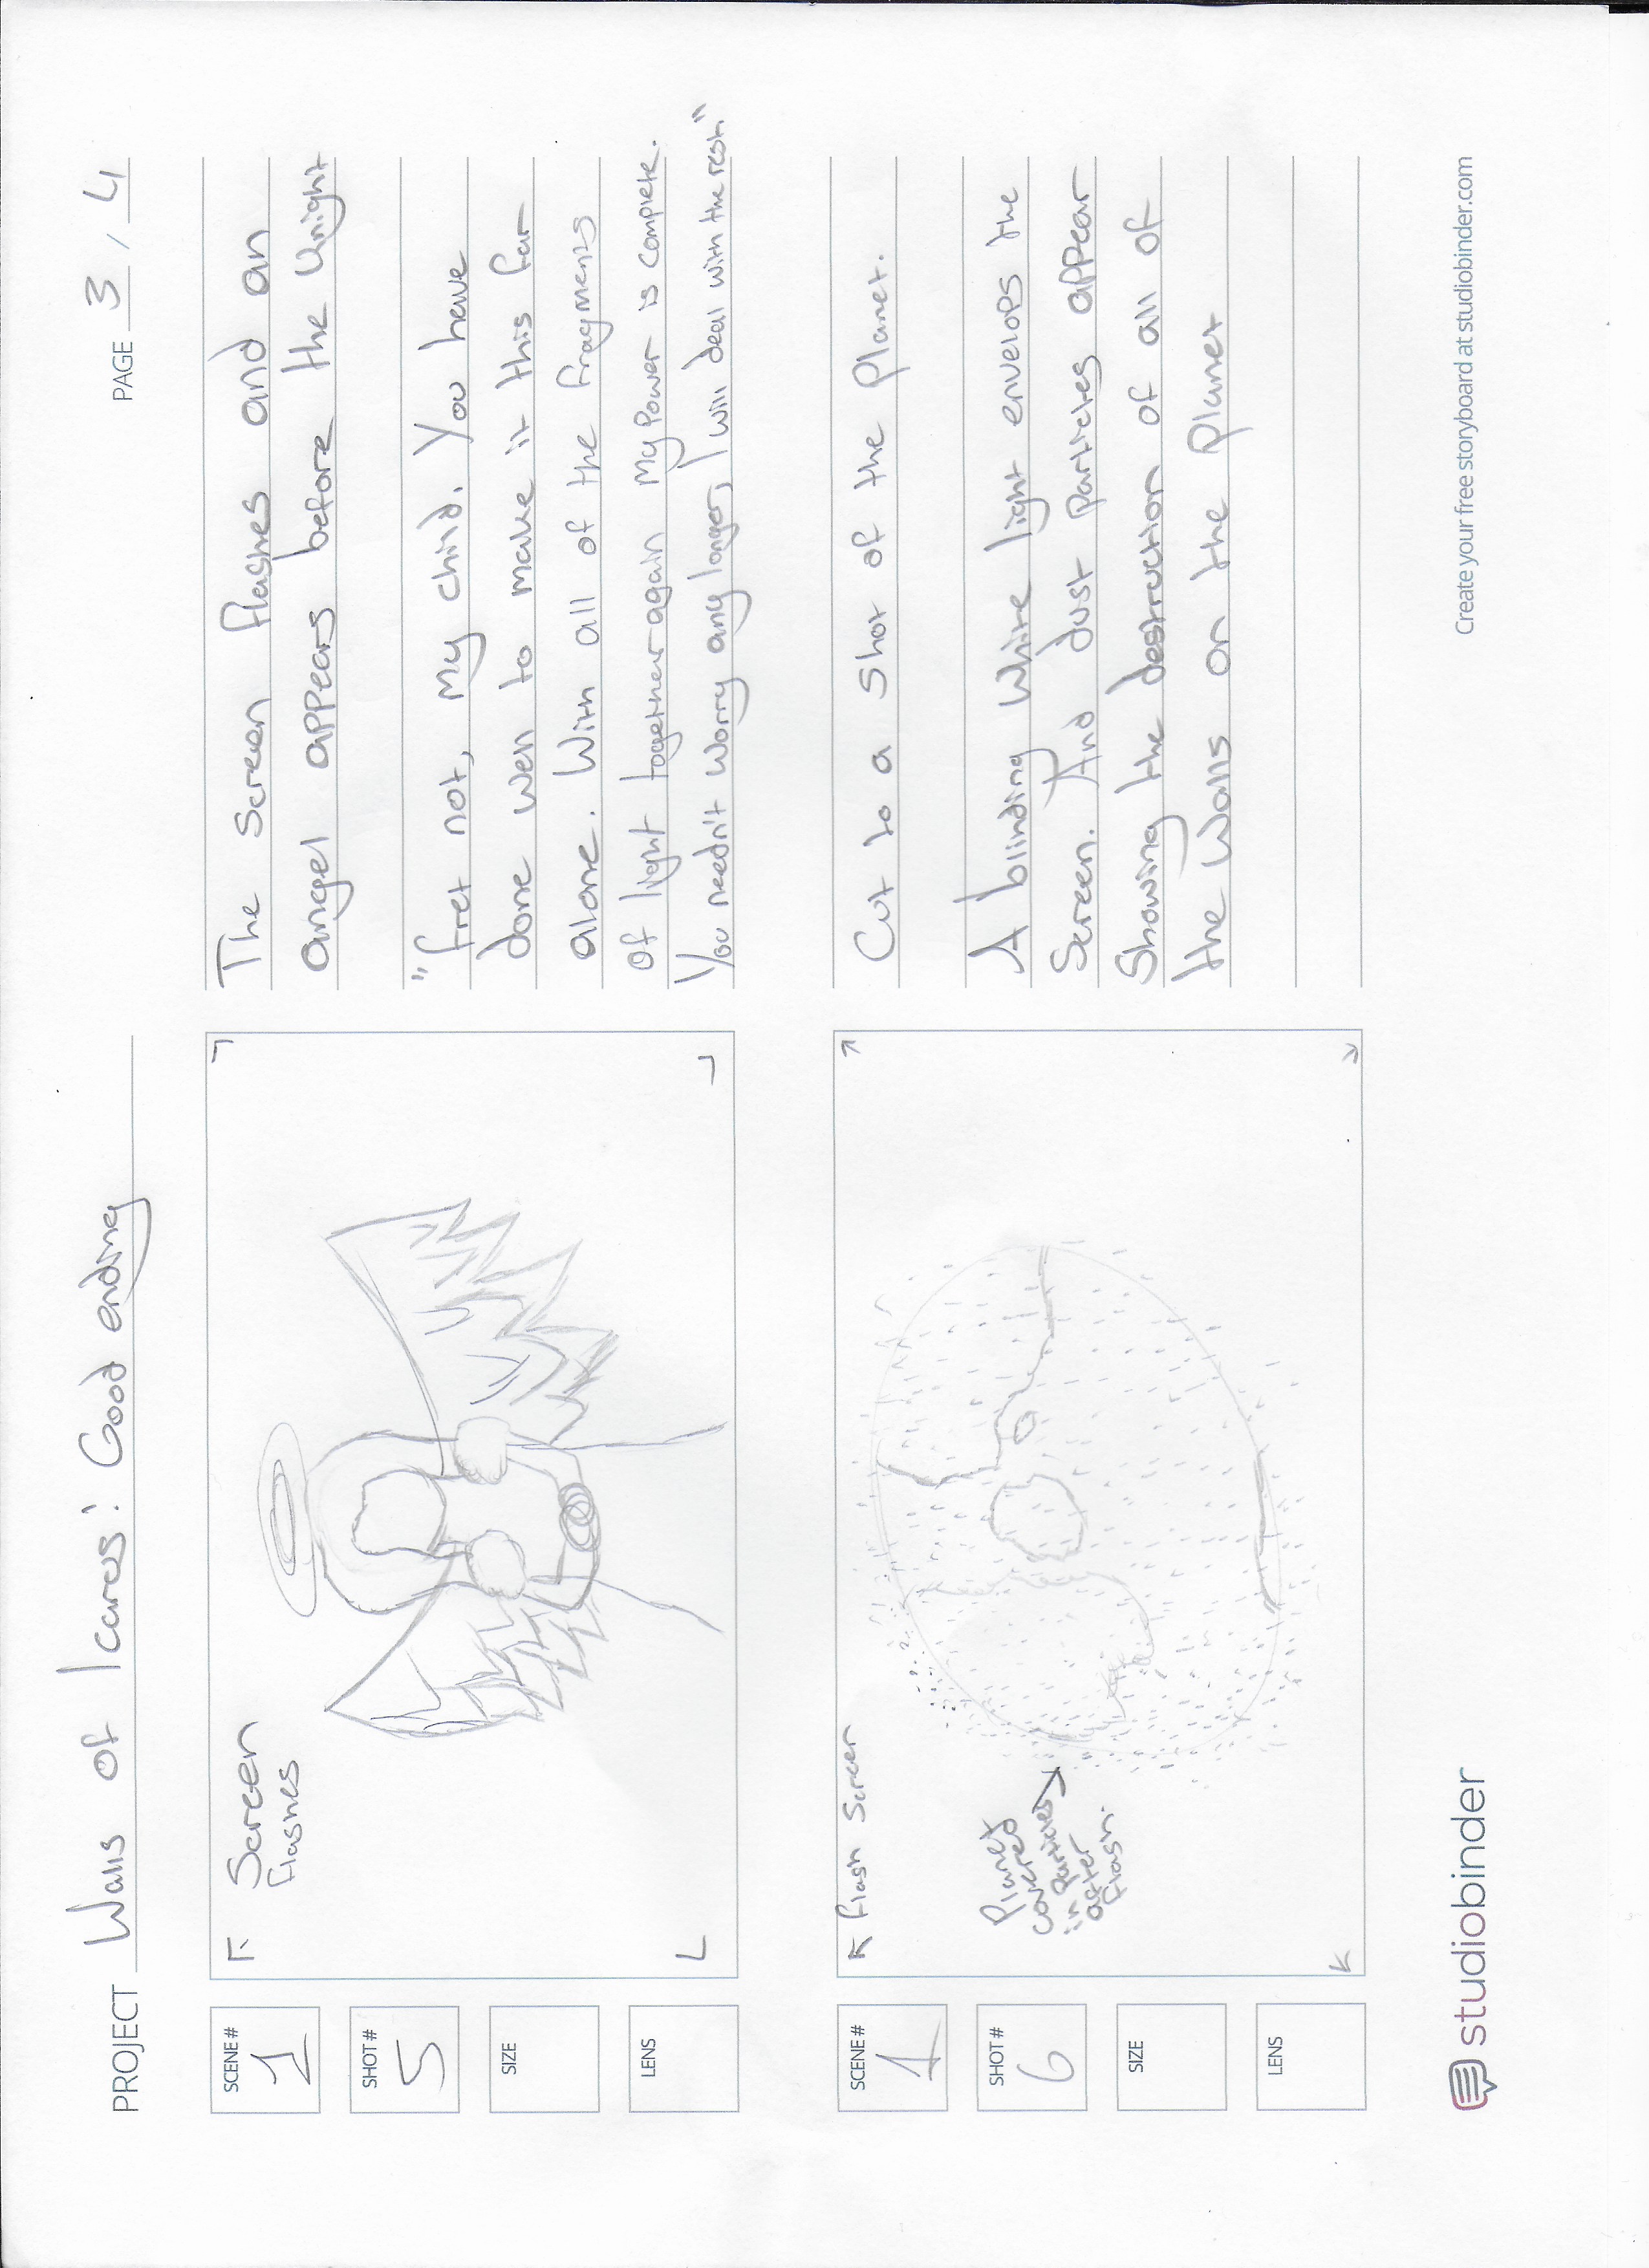 PROJECT Walls of Icarus: Good ending
PAGE 3 / 4
SCENE #
1
SHOT #
5
SIZE
LENS
Screen
flashes
The screen flashes and an
angel appears before the Knight
"fret not, my child. You have
done well to make it this far
alone. With all of the fragments
of light together again my power is complete.
You needn't worry any longer, I will deal with the rest."
SCENE #
1
SHOT #
6
SIZE
LENS
Flash Screen
Planet
covered
in particles
after
flash.
Cut to a shot of the planet.
A blinding white light envelops the
Screen. And dust particles appear
Showing the destruction of all of
the Walls on the planet
studiobinder
Create your free storyboard at studiobinder.com